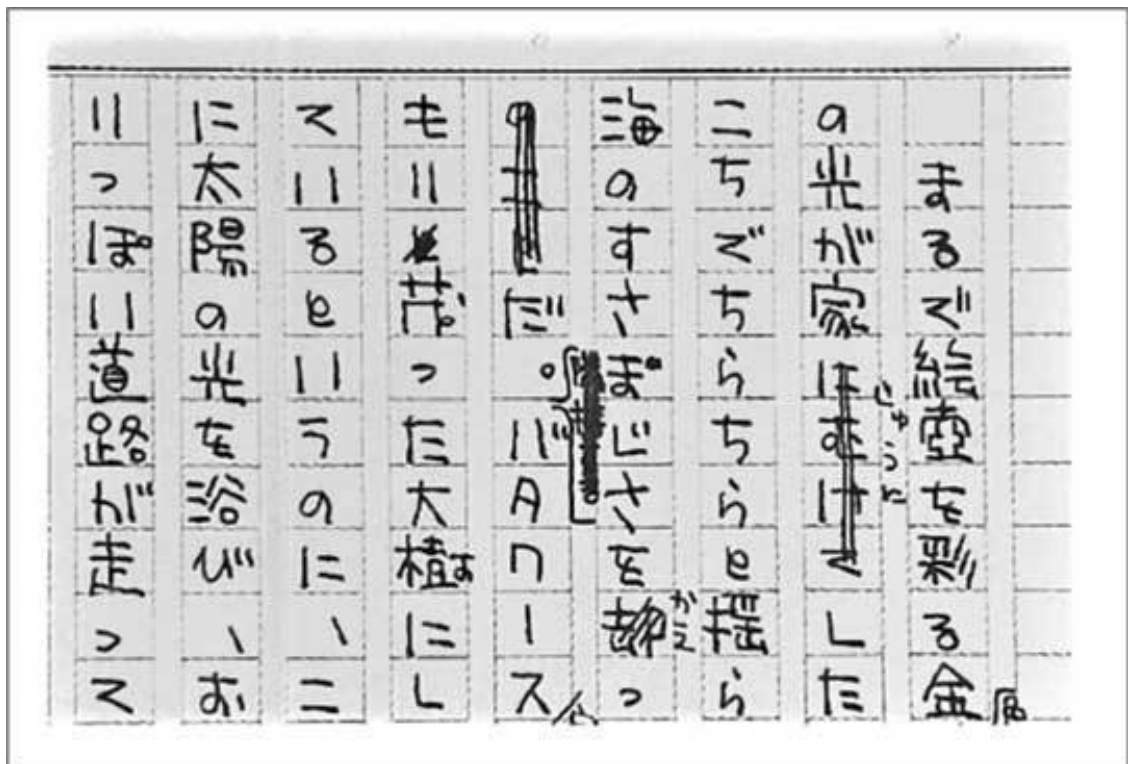 まるで絵壺を彩る金
の光が家じゅうにした
こちでちらちらと揺ら
海のすさぽじさをっ
だ。バタワース
もい茂った大植にし
ているというのに、こ
に太陽の光を浴び、お
いっぽい道路が走って